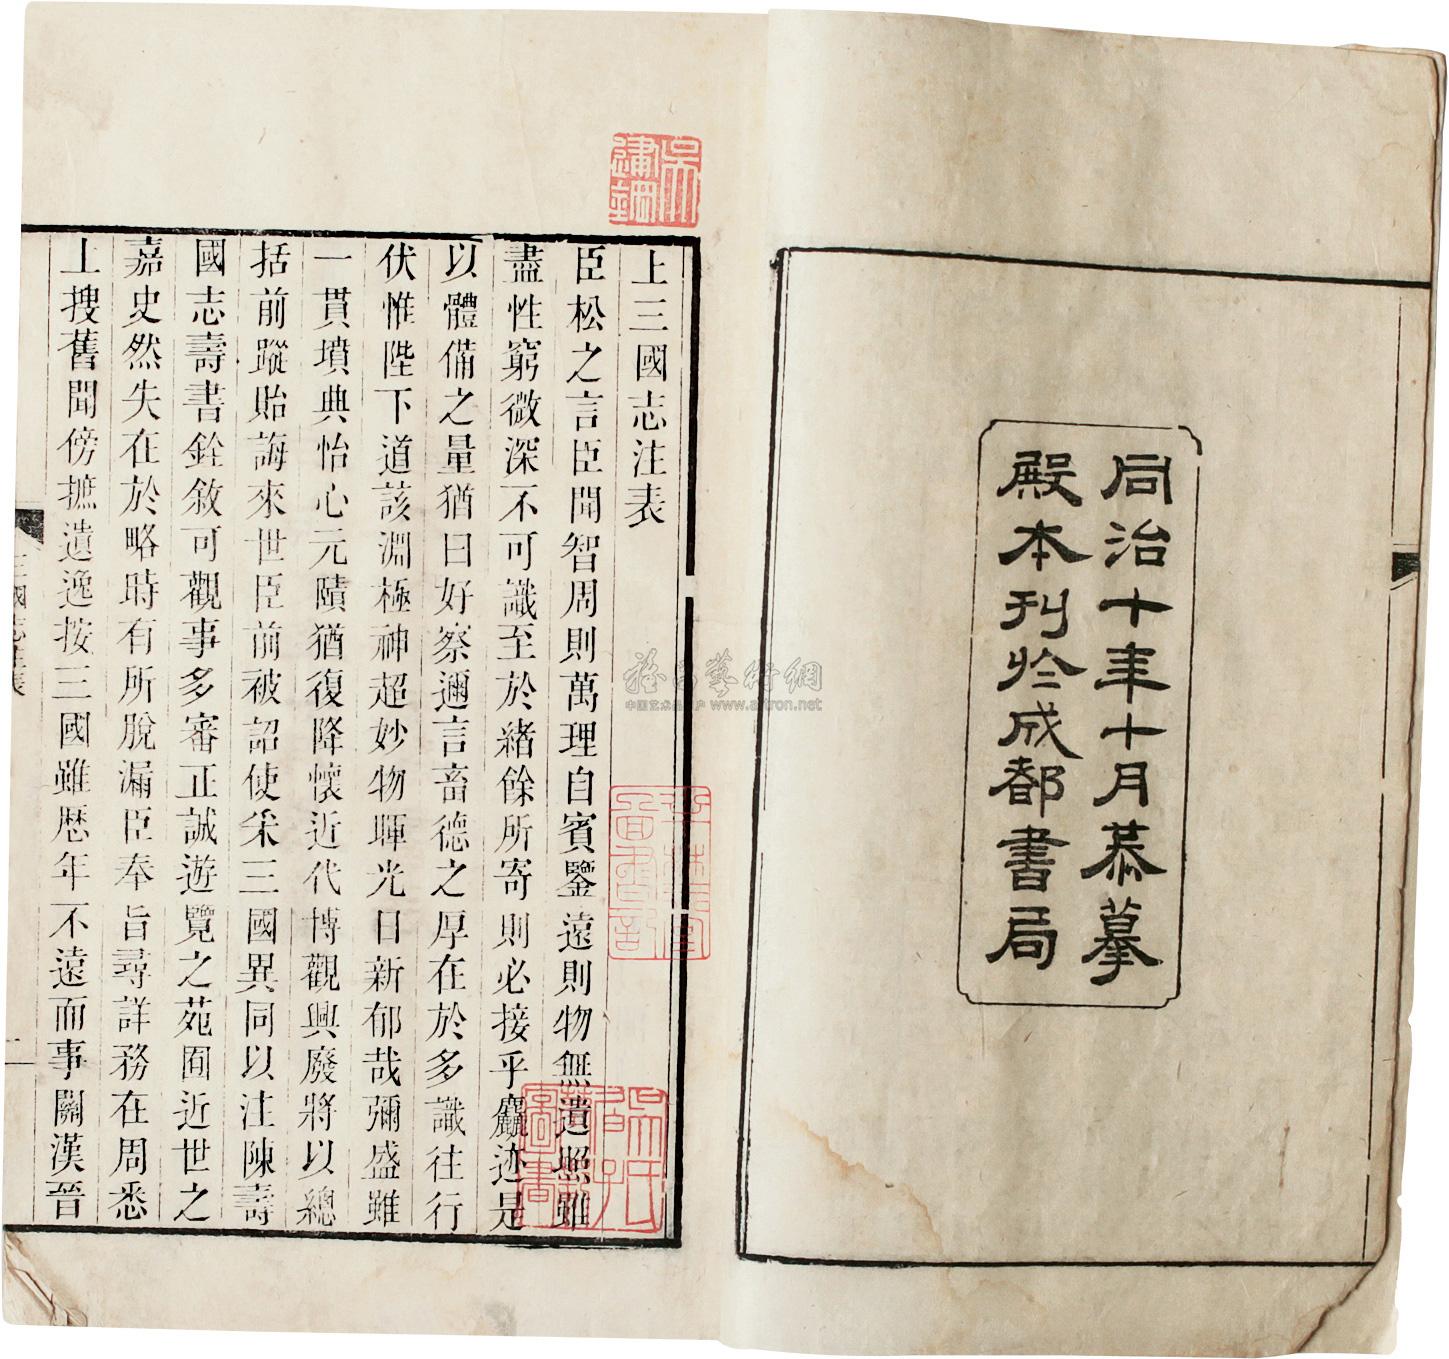 同治十年十月恭摹
殿本刊於成都書局
上三國志注表
臣松之言臣聞智周則萬理自賓鑒遠則物無遺照雖
盡性窮微深不可識至於緒餘所寄則必接乎麤迹是
以體備之量猶曰好察邇言畜德之厚在於多識往行
伏惟陛下道該淵極神超妙物暉光日新郁哉彌盛雖
一貫墳典怡心元賾猶復降懷近代博觀興廢將以總
括前蹤貽誨來世臣前被詔使采三國異同以注陳壽
國志壽書銓敘可觀事多審正誠遊覽之苑囿近世之
嘉史然失在於略時有所脫漏臣奉旨尋詳務在周悉
上搜舊聞傍摭遺逸按三國雖歷年不遠而事關漢晉
三國志注表
一
吳
圖書
雅昌藝術網
中国艺术品门户 www.artron.net